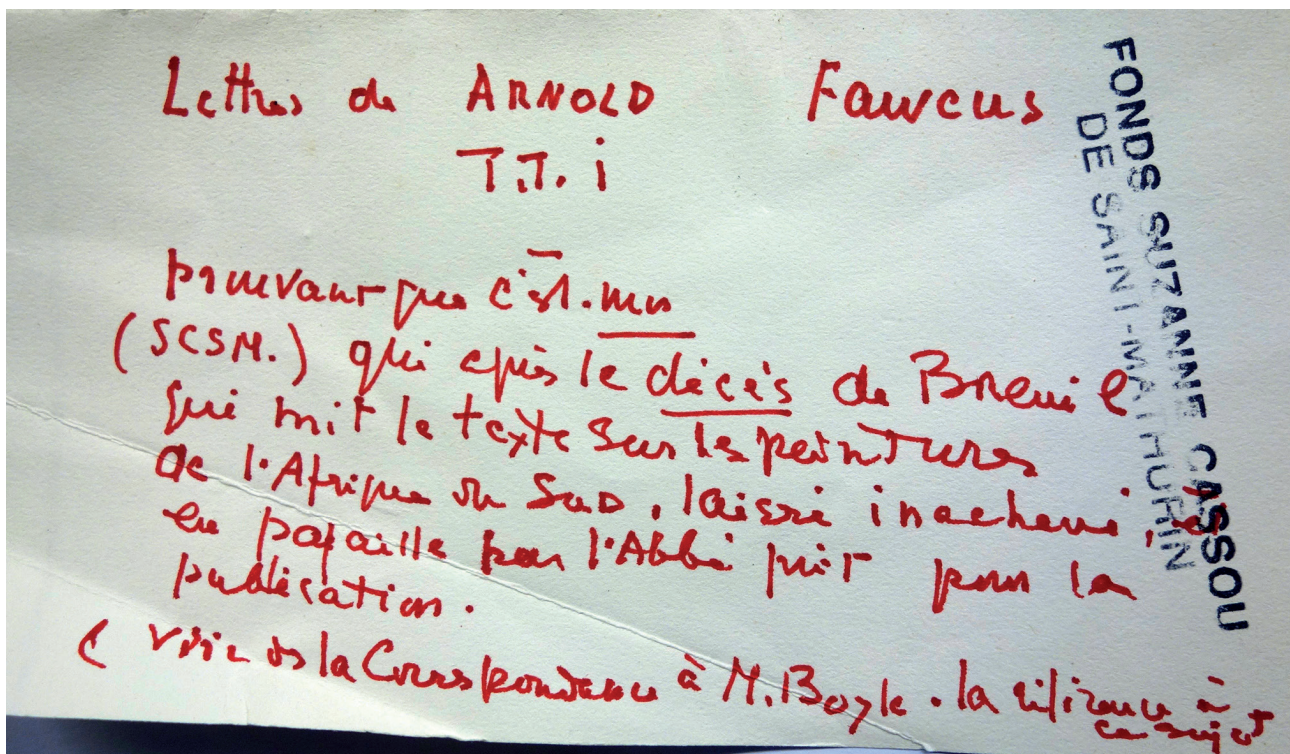 Lettres de ARNOLD Fawcus
T.T. i
prouvant que c'est. moi
(SCSM.) qui après le décès de Breuil
qui mit le texte sur les peintures
de l'Afrique du Sud, laissé inachevé, et
en pagaille par l'Abbé prêt pour la
publication.
( voir ds la Correspondance à M. Boyle. la référence à
ce sujet
FONDS SUZANNE CASSOU
DE SAINT-MATHURIN